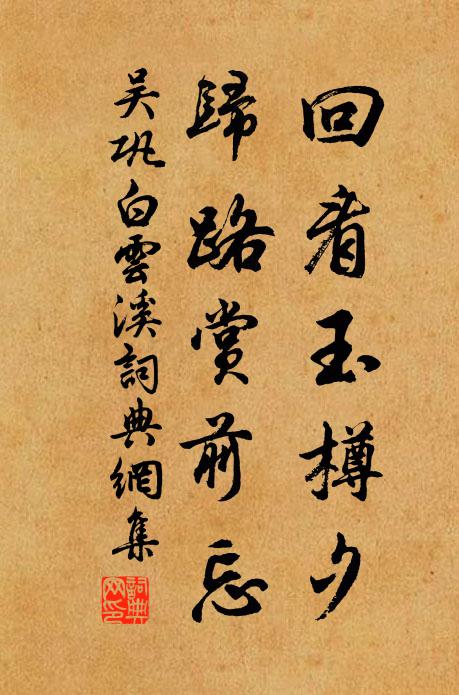 回看玉樽夕
歸路賞前忘
吴巩白雲溪詞典網集
詞典網印